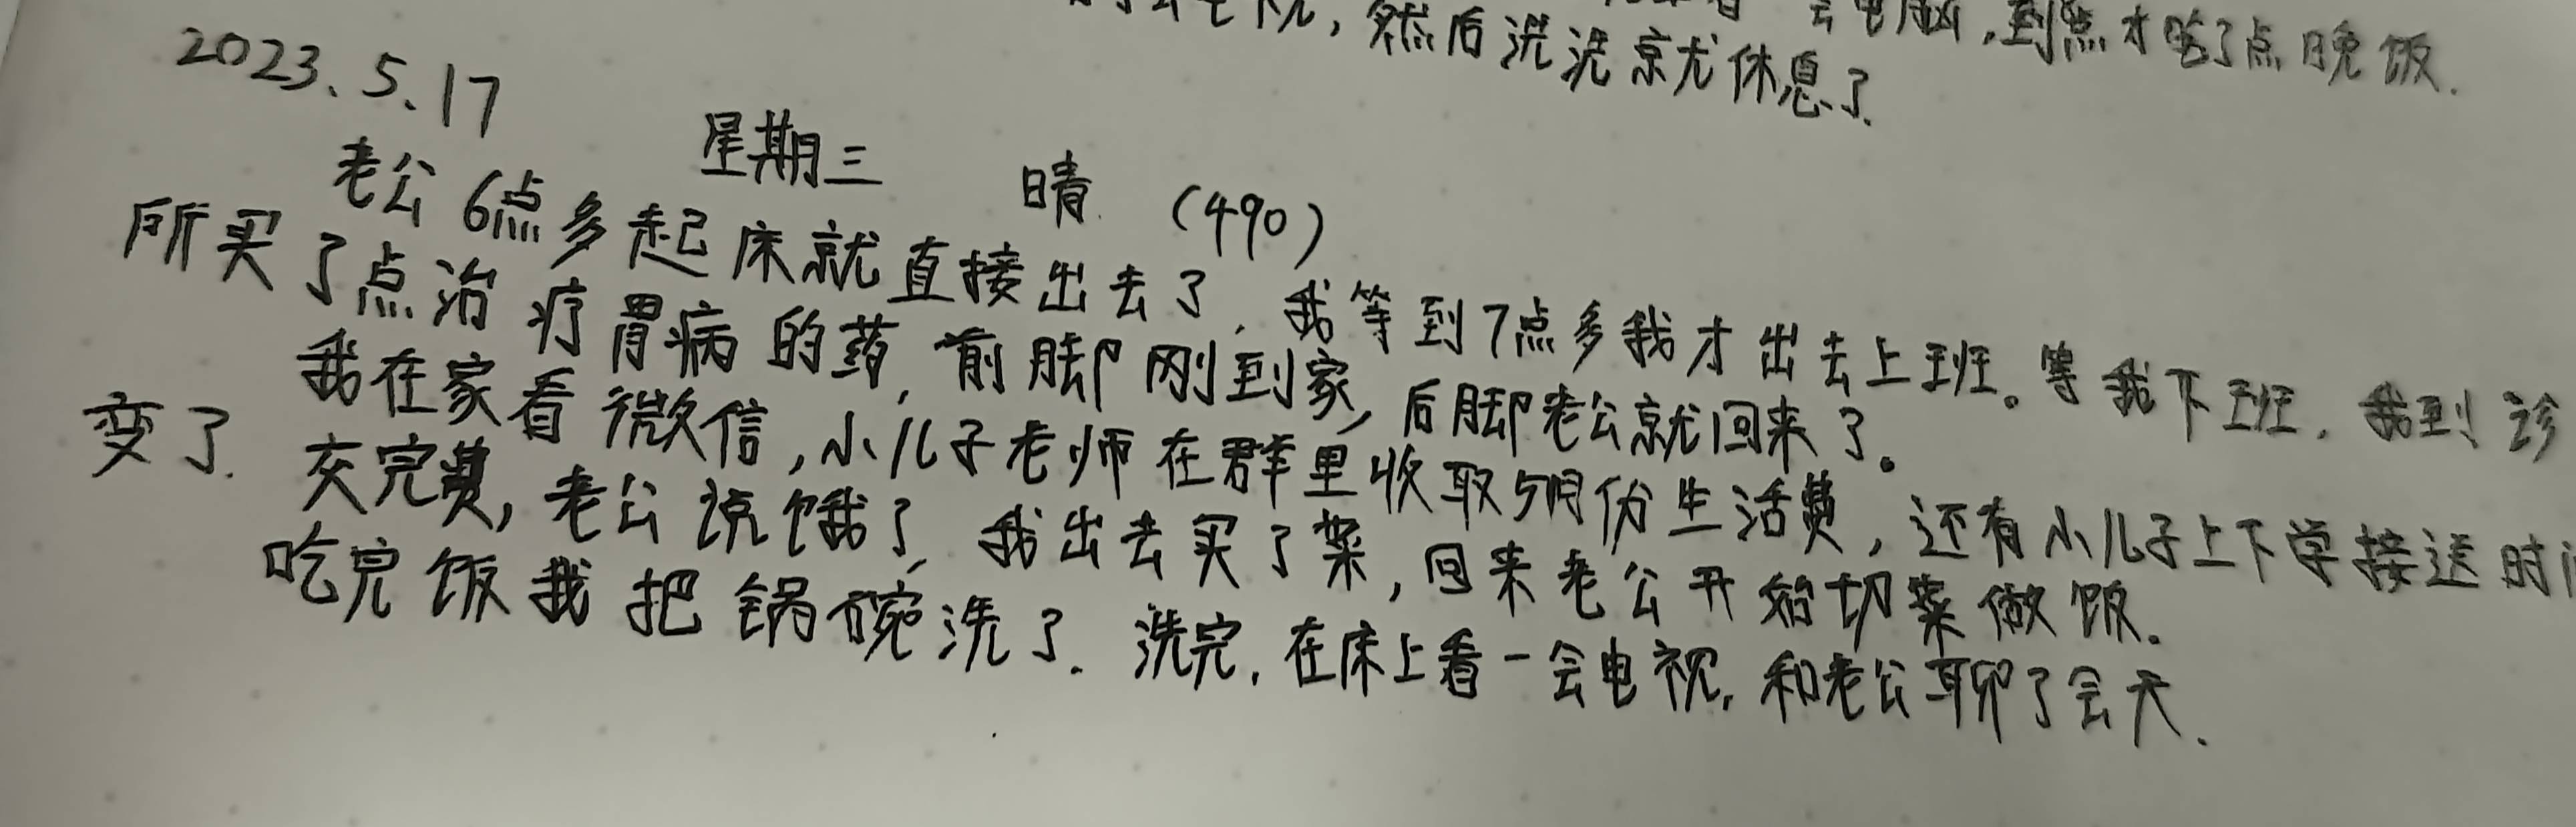 会电脑,到点才吃了点晚饭.
然后洗洗就休息了.
2023、5、17 星期三 晴 (490)
老公6点多起床就直接出去了,我等到7点多我才出去上班。等我下班,我到诊
所买了点治疗胃病的药,前脚刚到家,后脚老公就回来了。
我在家看微信,小儿子老师在群里收取5月份生活费,还有小儿子上下学接送时
变了.
交完费,老公说饿了,我出去买了菜,回来老公开始切菜做饭.
吃完饭我把锅碗洗了.洗完,在床上看一会电视,和老公聊了会天.